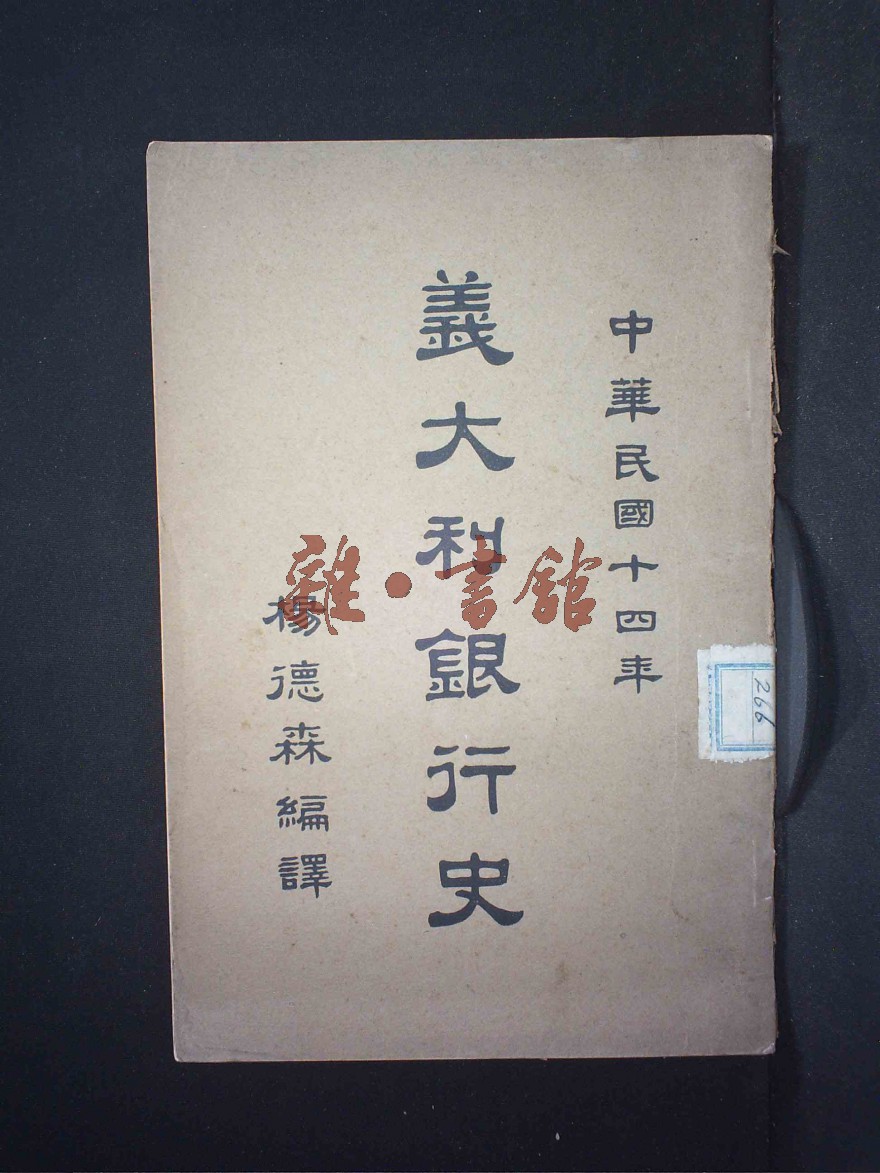 中華民國十四年
義大利銀行史
楊德森編譯
雜·書館
266